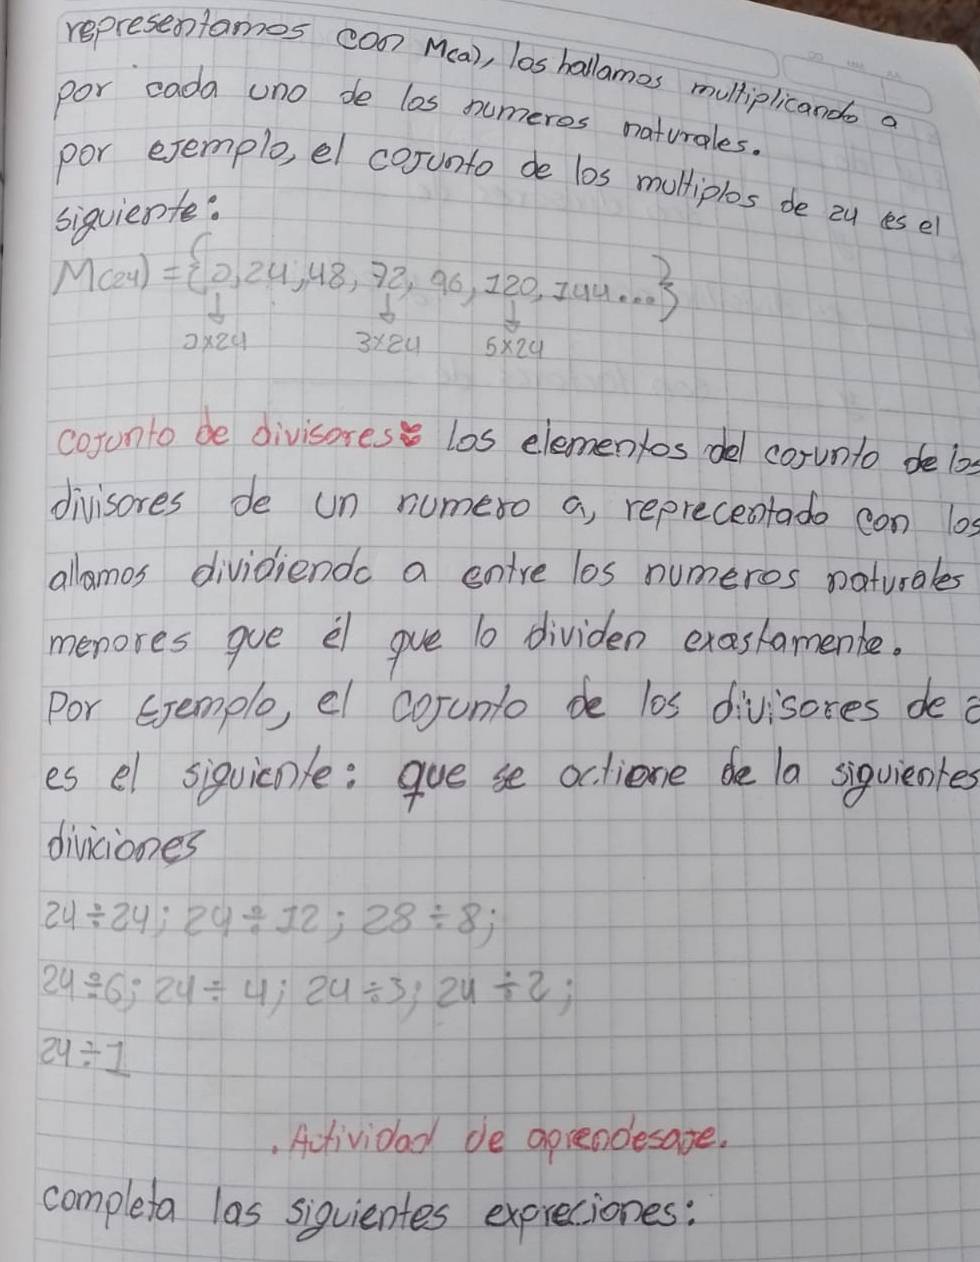 representamos con M(a), los hallamos multiplicando a
por cada uno de los numeros naturales.
por ejemplo, el cojunto de los multiplos de 24 es el
siguiente:
M(24) = {0, 24, 48, 72, 96, 120, 144...}
0x24 3x24 5x24
cojunto de divisores: los elementos del cojunto de los
divisores de un numero a, reprecentado con los
allamos dividiendo a entre los numeros naturales
menores que él que lo dividen exastamente.
Por Ejemplo, el cojunto de los divisores de
es el siguiente: que se octiene de la siguientes
diviciones
24÷24; 24÷12; 28÷8;
24÷6; 24÷4; 24÷3; 24÷2;
24÷1
. Actividad de aprendesaje.
completa las siguientes expreciones: